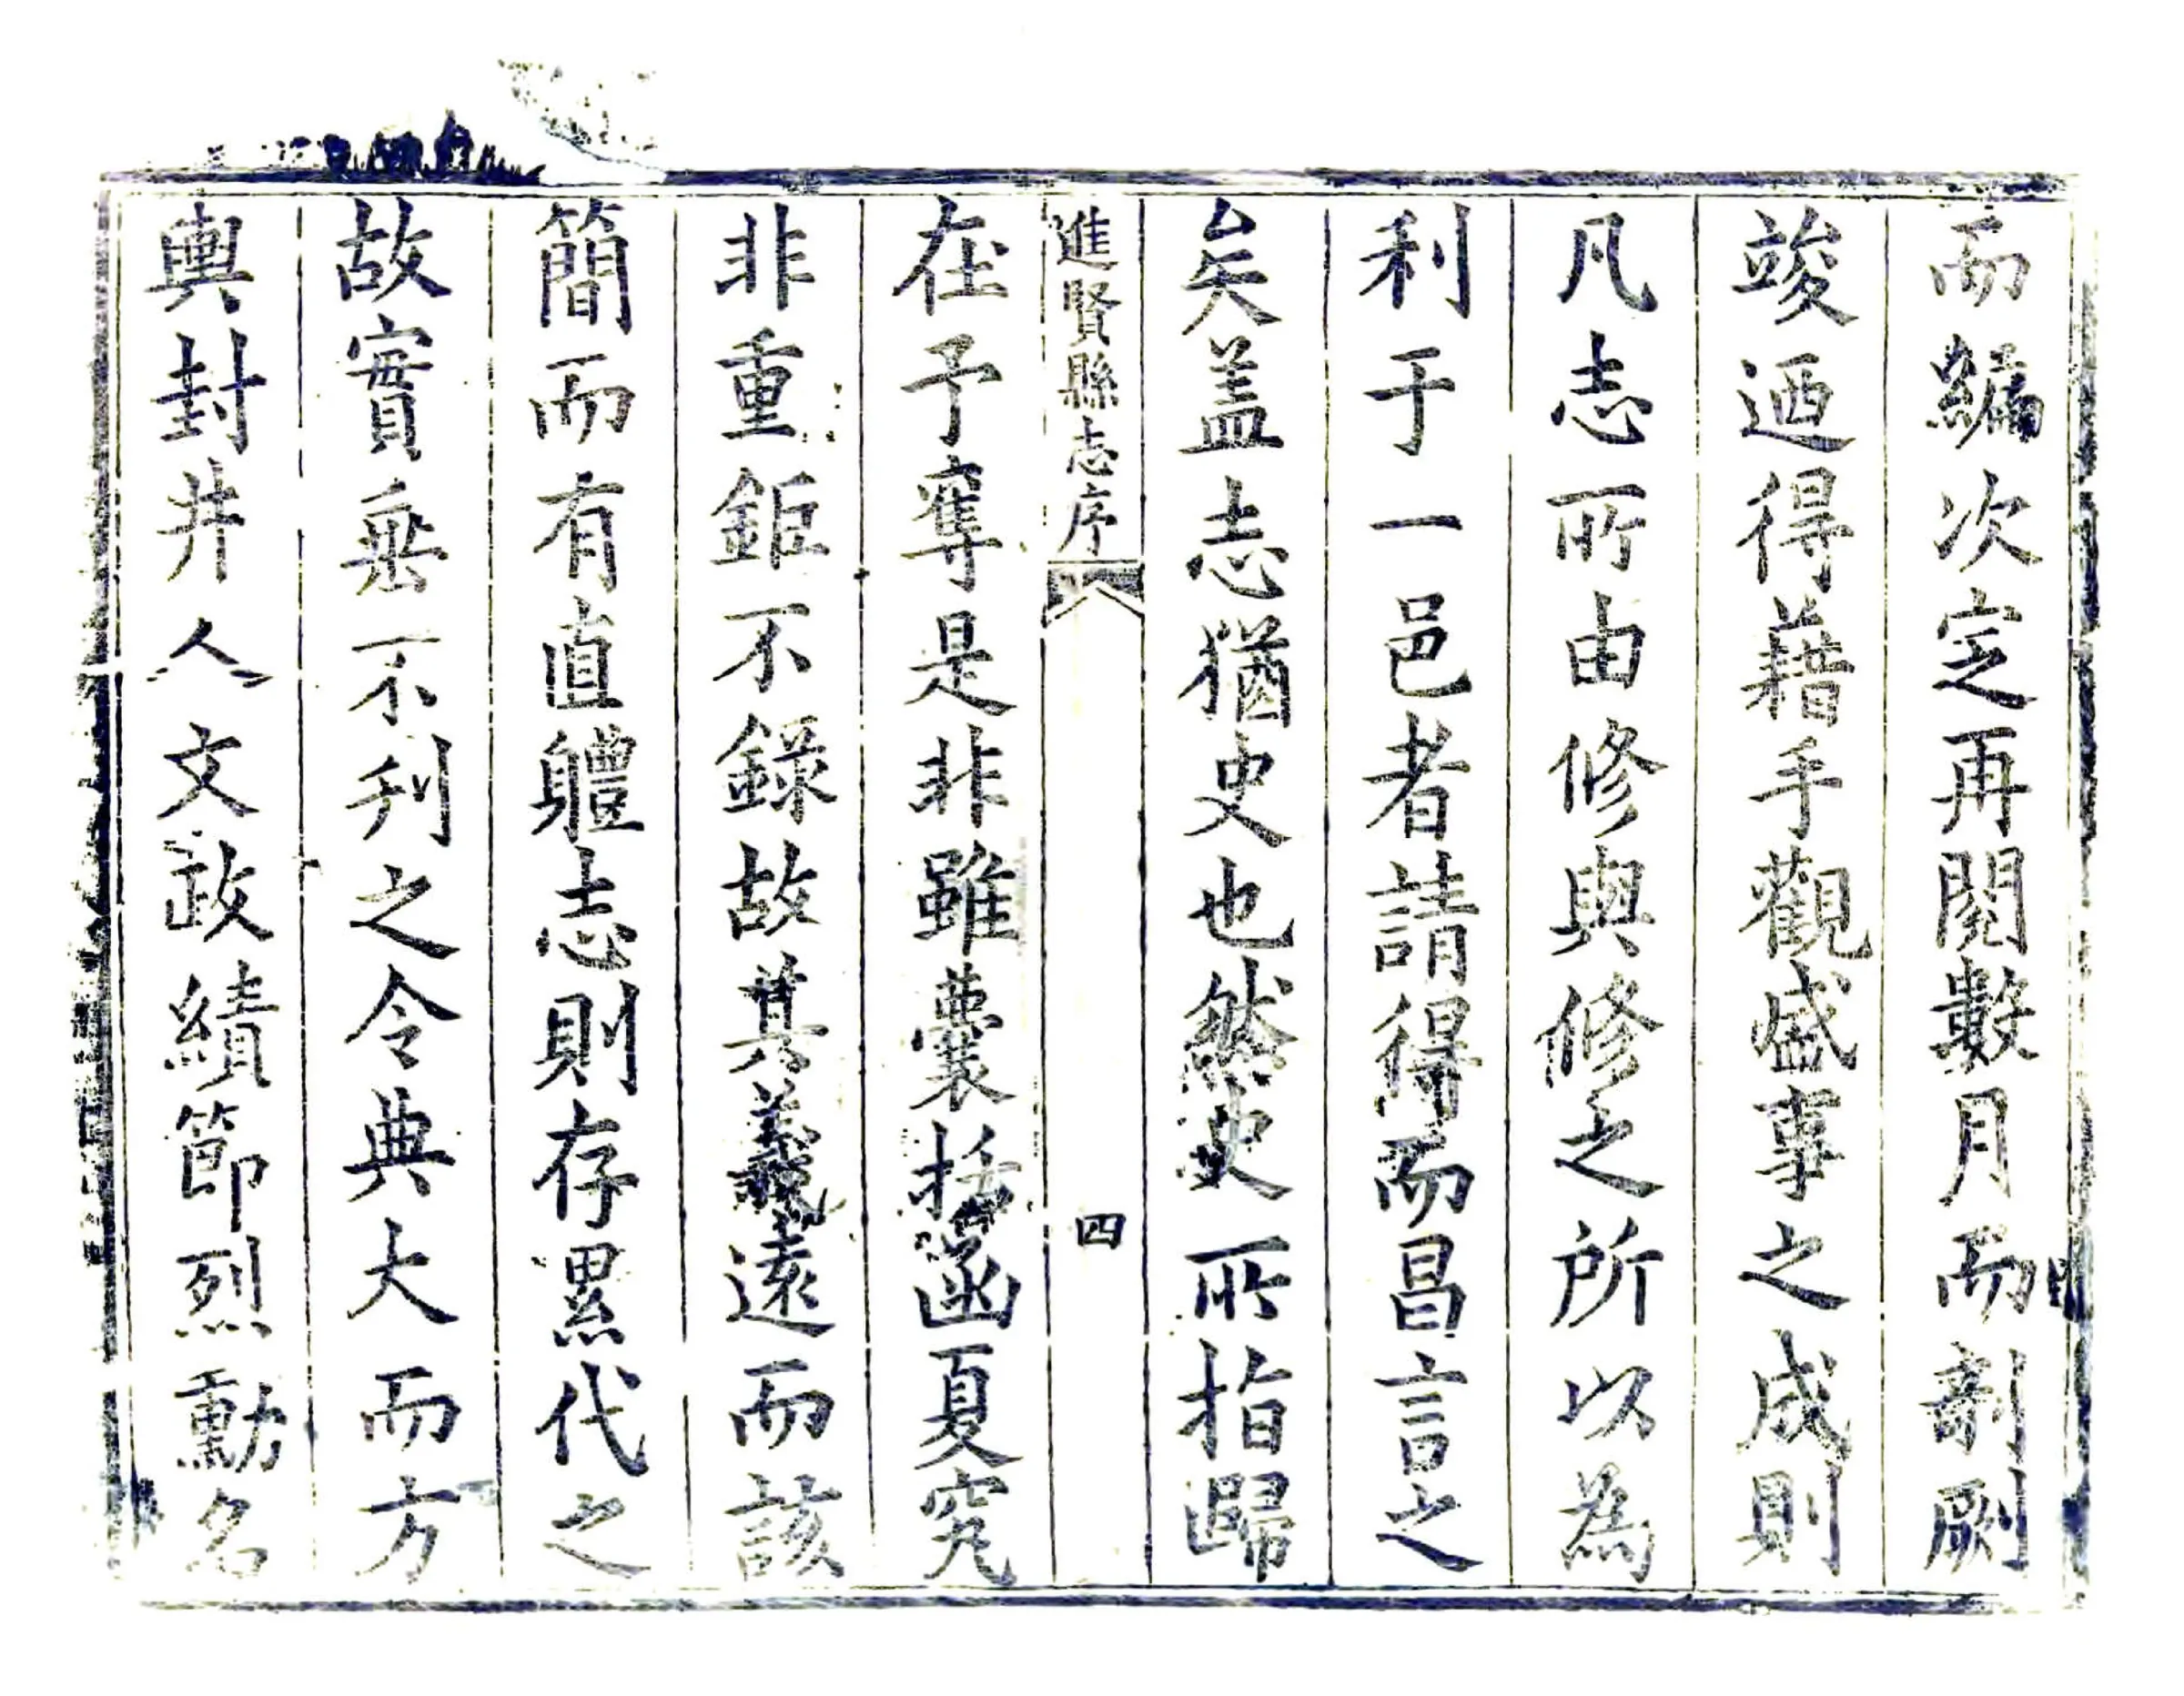 而編次定再閱數月而剞劂
竣迺得藉手觀盛事之成則
凡志所由修與修之所以為
利于一邑者請得而昌言之
矣盖志猶史也然史所指歸
進賢縣志序
四
在予奪是非雖囊括函夏究
非重鉅不錄故其義遠而該
簡而有直軆志則存累代之
故實垂不刋之令典大而方
輿封井人文政績節烈勳名